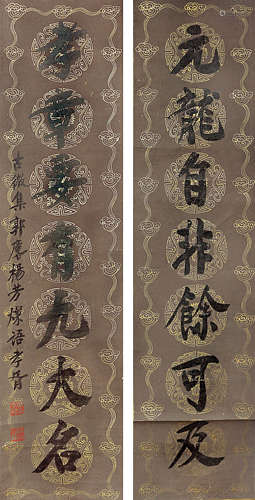 元龍自非餘可及
孝章要有九大名
古微集郭麐楊芳燦語孝胥